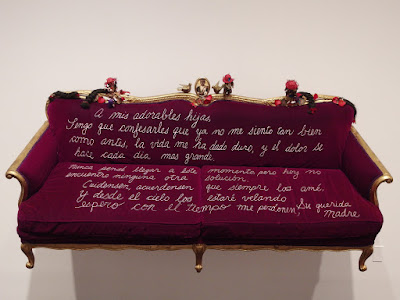 A mis adorables hijas,
Tengo que confesarles que ya no me siento tan bien
como antes, la vida me ha dado duro, y el dolor se
hace cada dia mas grande.
Nunca pensé llegar a este momento pero hoy no
encuentro ninguna otra solución.
Cuidensen, acuerdensen que siempre las amé.
Y desde el cielo las estaré velando
espero con el tiempo me perdonen, Su querida
Madre